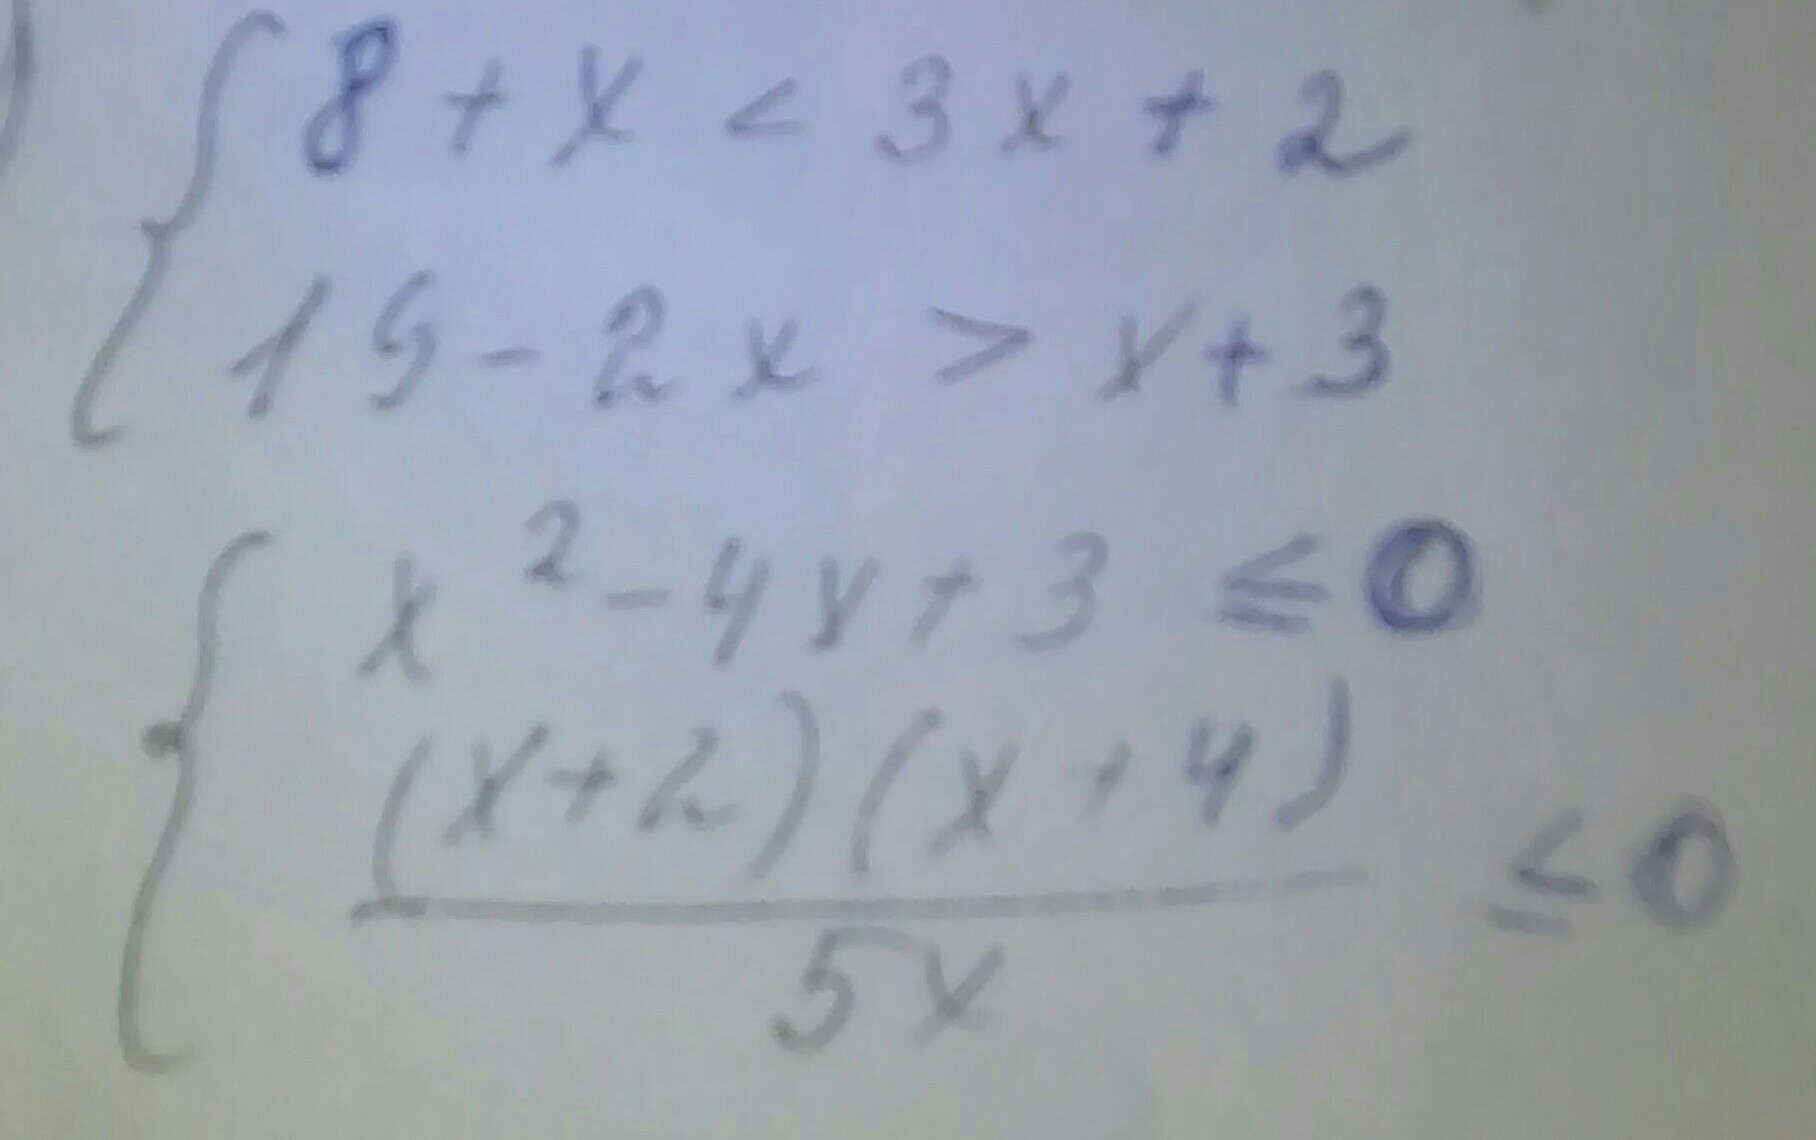 8 + x < 3x + 2
15 - 2x > x + 3
x² - 4x + 3 ≤ 0
(x + 2)(x + 4)
5x
≤ 0